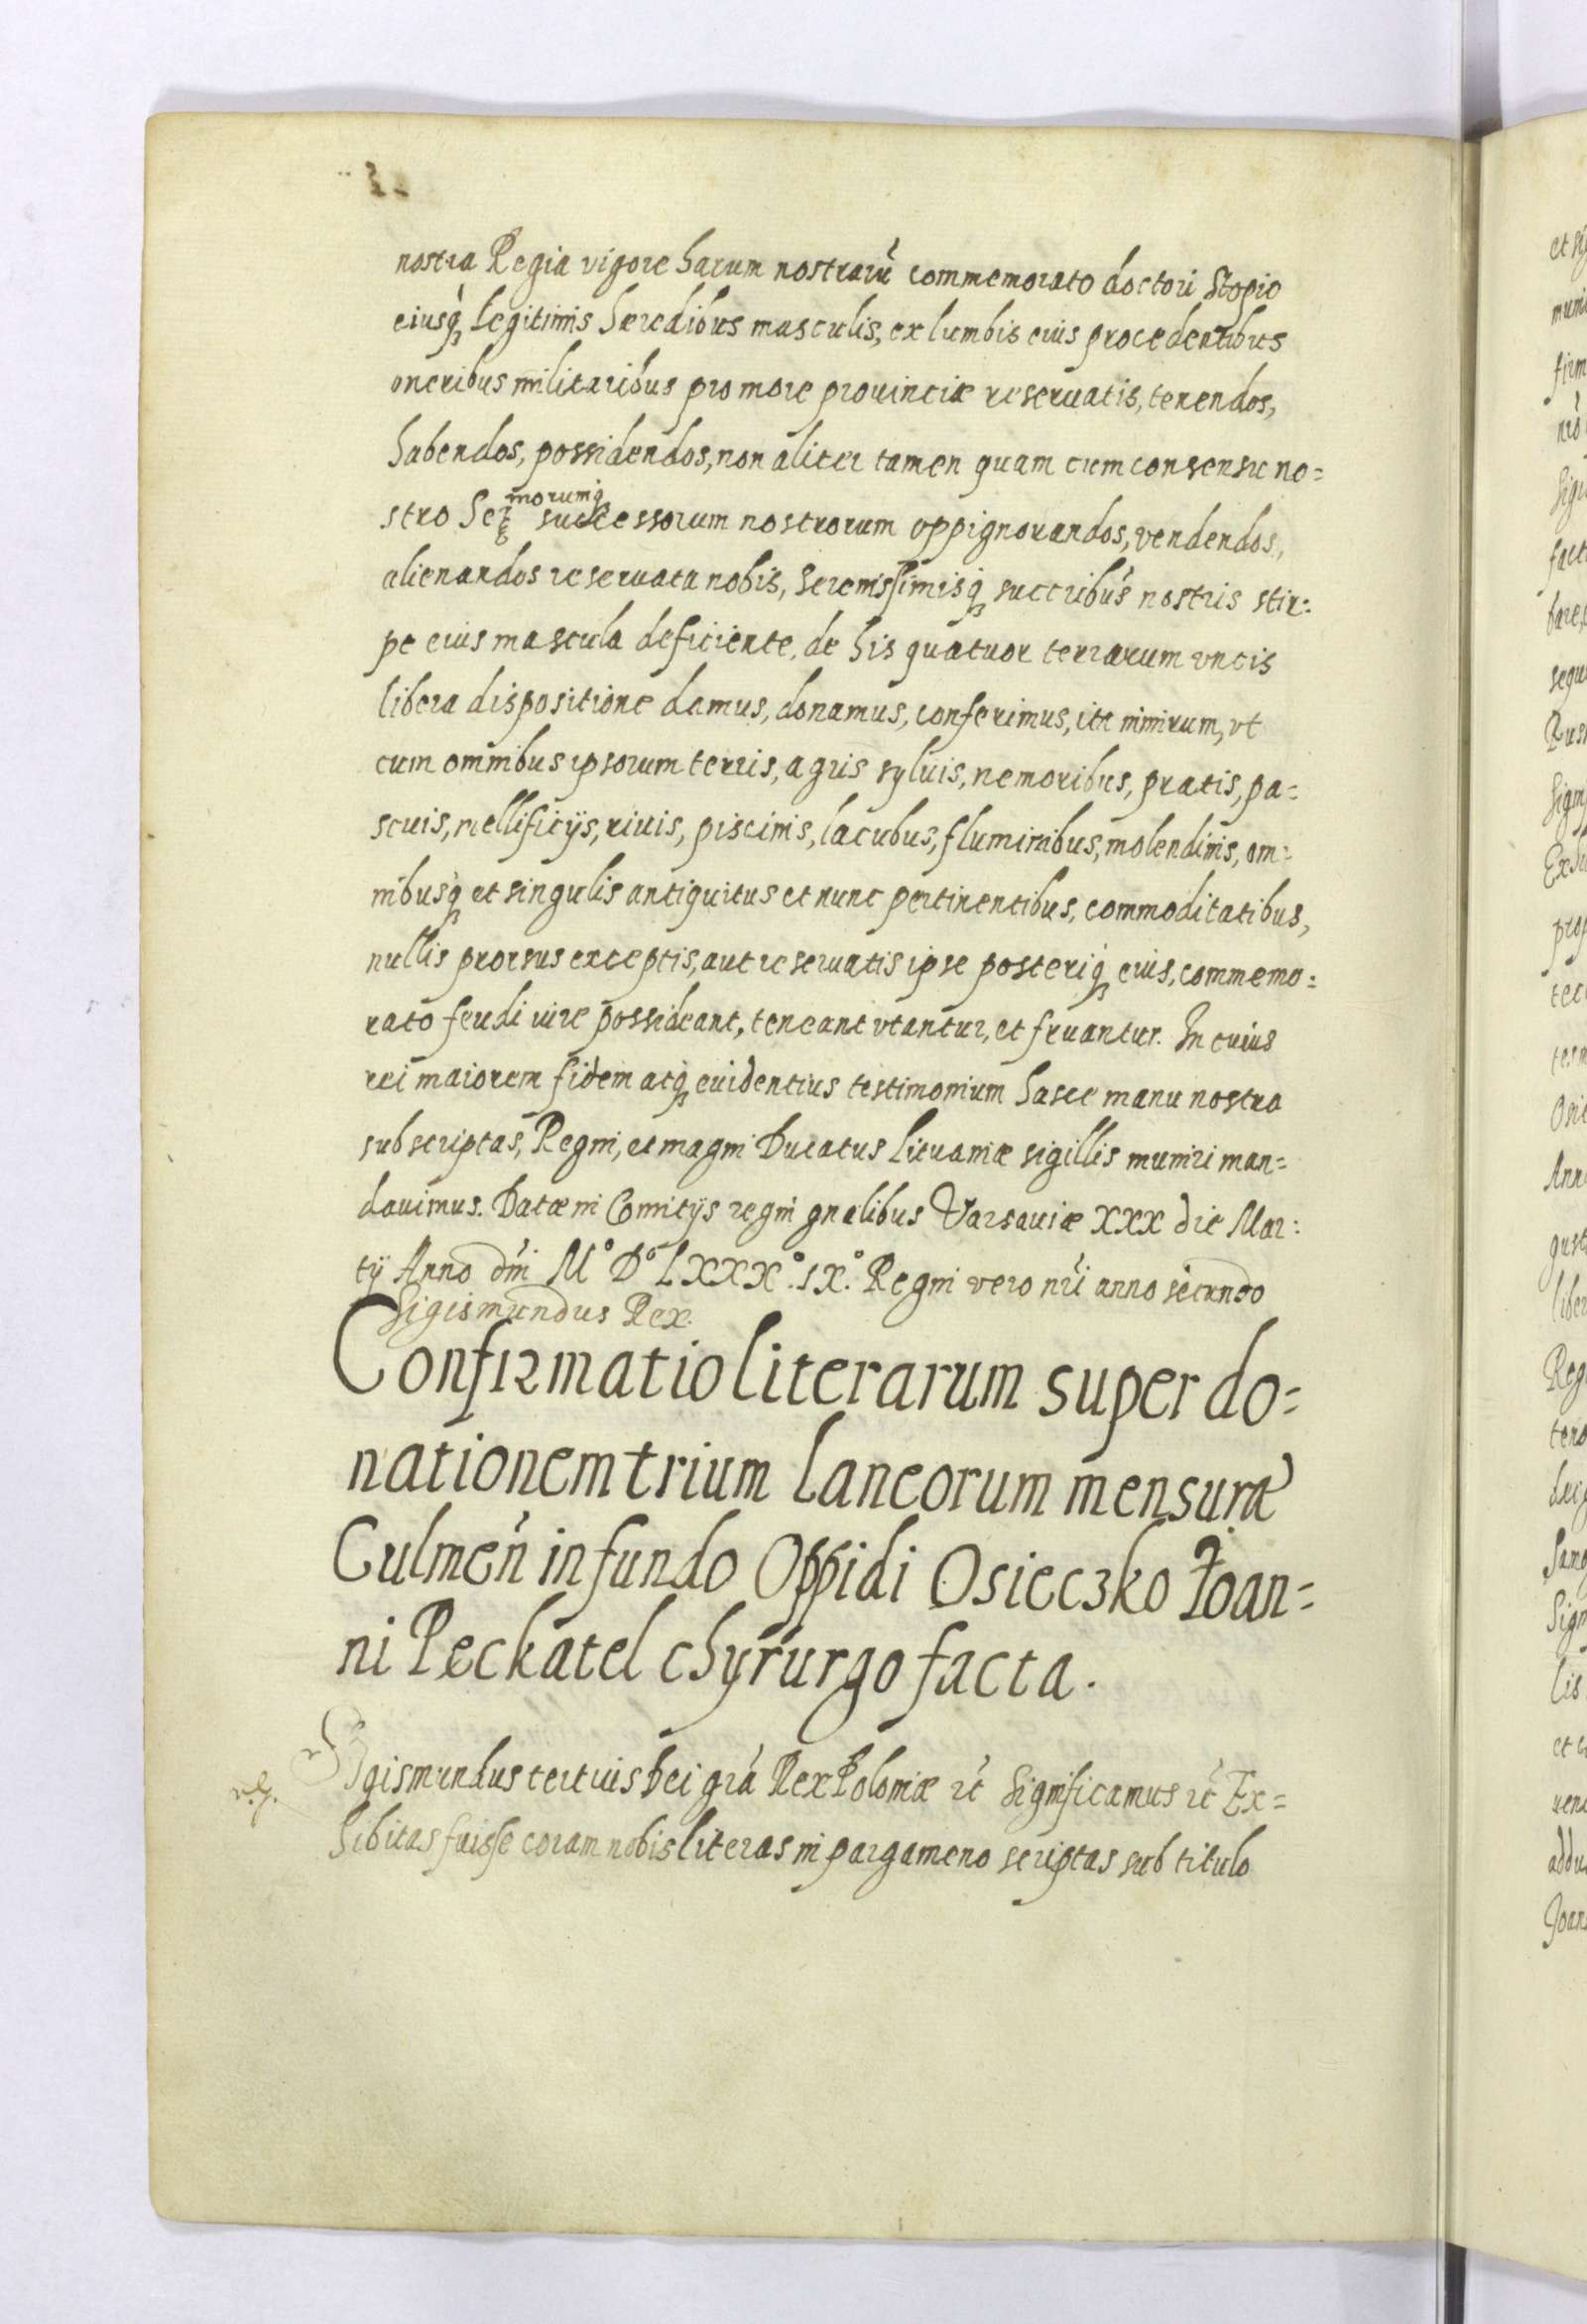 nostra Regia vigore harum nostrarū commemorato doctori Stopio
eiusq̨ legitimis hæredibus masculis, ex lumbis eius procedentibus
oneribus militaribus pro more prouinciæ reseruatis, tenendos,
habendos, possidendos, non aliter tamen quam cum consensu no=
stro Ser
morumq̨
successorum nostrorum oppignorandos, vendendos,
alienandos reseruata nobis, Serenissimisq̨ succribus nostris stir=
pe eius mascula deficiente, de his quatuor terrarum vncis
libera dispositione damus, donamus, conferimus, ita nimirum, vt
cum omnibus ipsorum terris, agris syluis, nemoribus, pratis, pa=
scuis, mellificijs, riuis, piscinis, lacubus, fluminibus, molendinis, om=
nibusq̨ et singulis antiquitus et nunc pertinentibus, commoditatibus,
nullis prorsus exceptis, aut reseruatis ipse posteriq̨ eius, commemo=
rato feudi iure possideant, teneant vtantur, et fruantur. In cuius
rei maiorem fidem atq̨ euidentius testimonium hasce manu nostra
subscriptas, Regni, et magni Ducatus Lituaniæ sigillis muniri man=
dauimus. Datæ in Comitijs regni gnalibus Varsauiæ XXX die Mar=
tij Anno dńi M° D° LXXX°. IX.° Regni vero nŕi anno secundo
Sigismundus Rex.
Confirmatio literarum super do=
nationem trium laneorum mensura
Culmeń in fundo Oppidi Osieczko Ioan=
ni Peckatel chyrurgo facta.
Sigismundus tertius Dei grá Rex Poloniæ ꝛc̄ Significamus ꝛc̄ Ex=
hibitas fuisse coram nobis literas in pargameno scriptas sub titulo